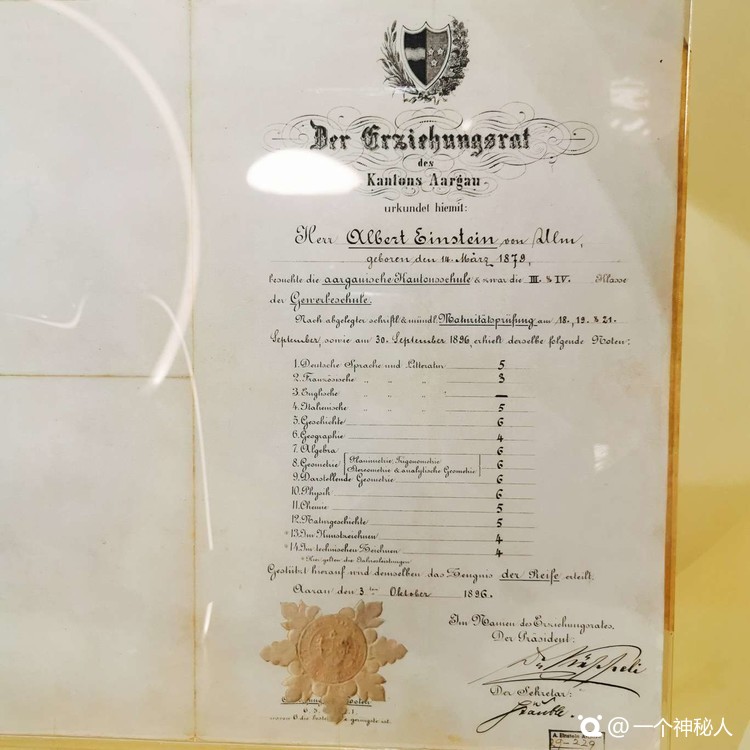 Der Erziehungsrat
des
Kantons Aargau
urkundet hiemit:
Herr Albert Einstein von Ulm,
geboren den 14. März 1879,
besuchte die aargauische Kantonsschule & zwar die III. & IV. Klasse
der Gewerbeschule.
Nach abgelegter schriftl. & mündl. Maturitätsprüfung am 18., 19. & 21.
September, sowie am 30. September 1896, erhielt derselbe folgende Noten:
1. Deutsche Sprache und Litteratur 5
2. Französische " " " 3
3. Englische " " " —
4. Italienische " " " 5
5. Geschichte 6
6. Geographie 4
7. Algebra 6
8. Geometrie Planimetrie, Trigonometrie 6
Stereometrie & analytische Geometrie
9. Darstellende Geometrie 6
10. Physik 6
11. Chemie 5
12. Naturgeschichte 5
*13. Im Kunstzeichnen 4
*14. Im technischen Zeichnen 4
* Hier gelten die Jahresleistungen
Gestützt hierauf wird demselben das Zeugnis der Reife erteilt.
Aarau den 3ten Oktober 1896.
Im Namen des Erziehungsrates.
Der Präsident:
Der Sekretär:
6. 5. 2. 1.
wovon 6 die beste, 1 geringste ist.
A. Einstein
29-229
@一个神秘人